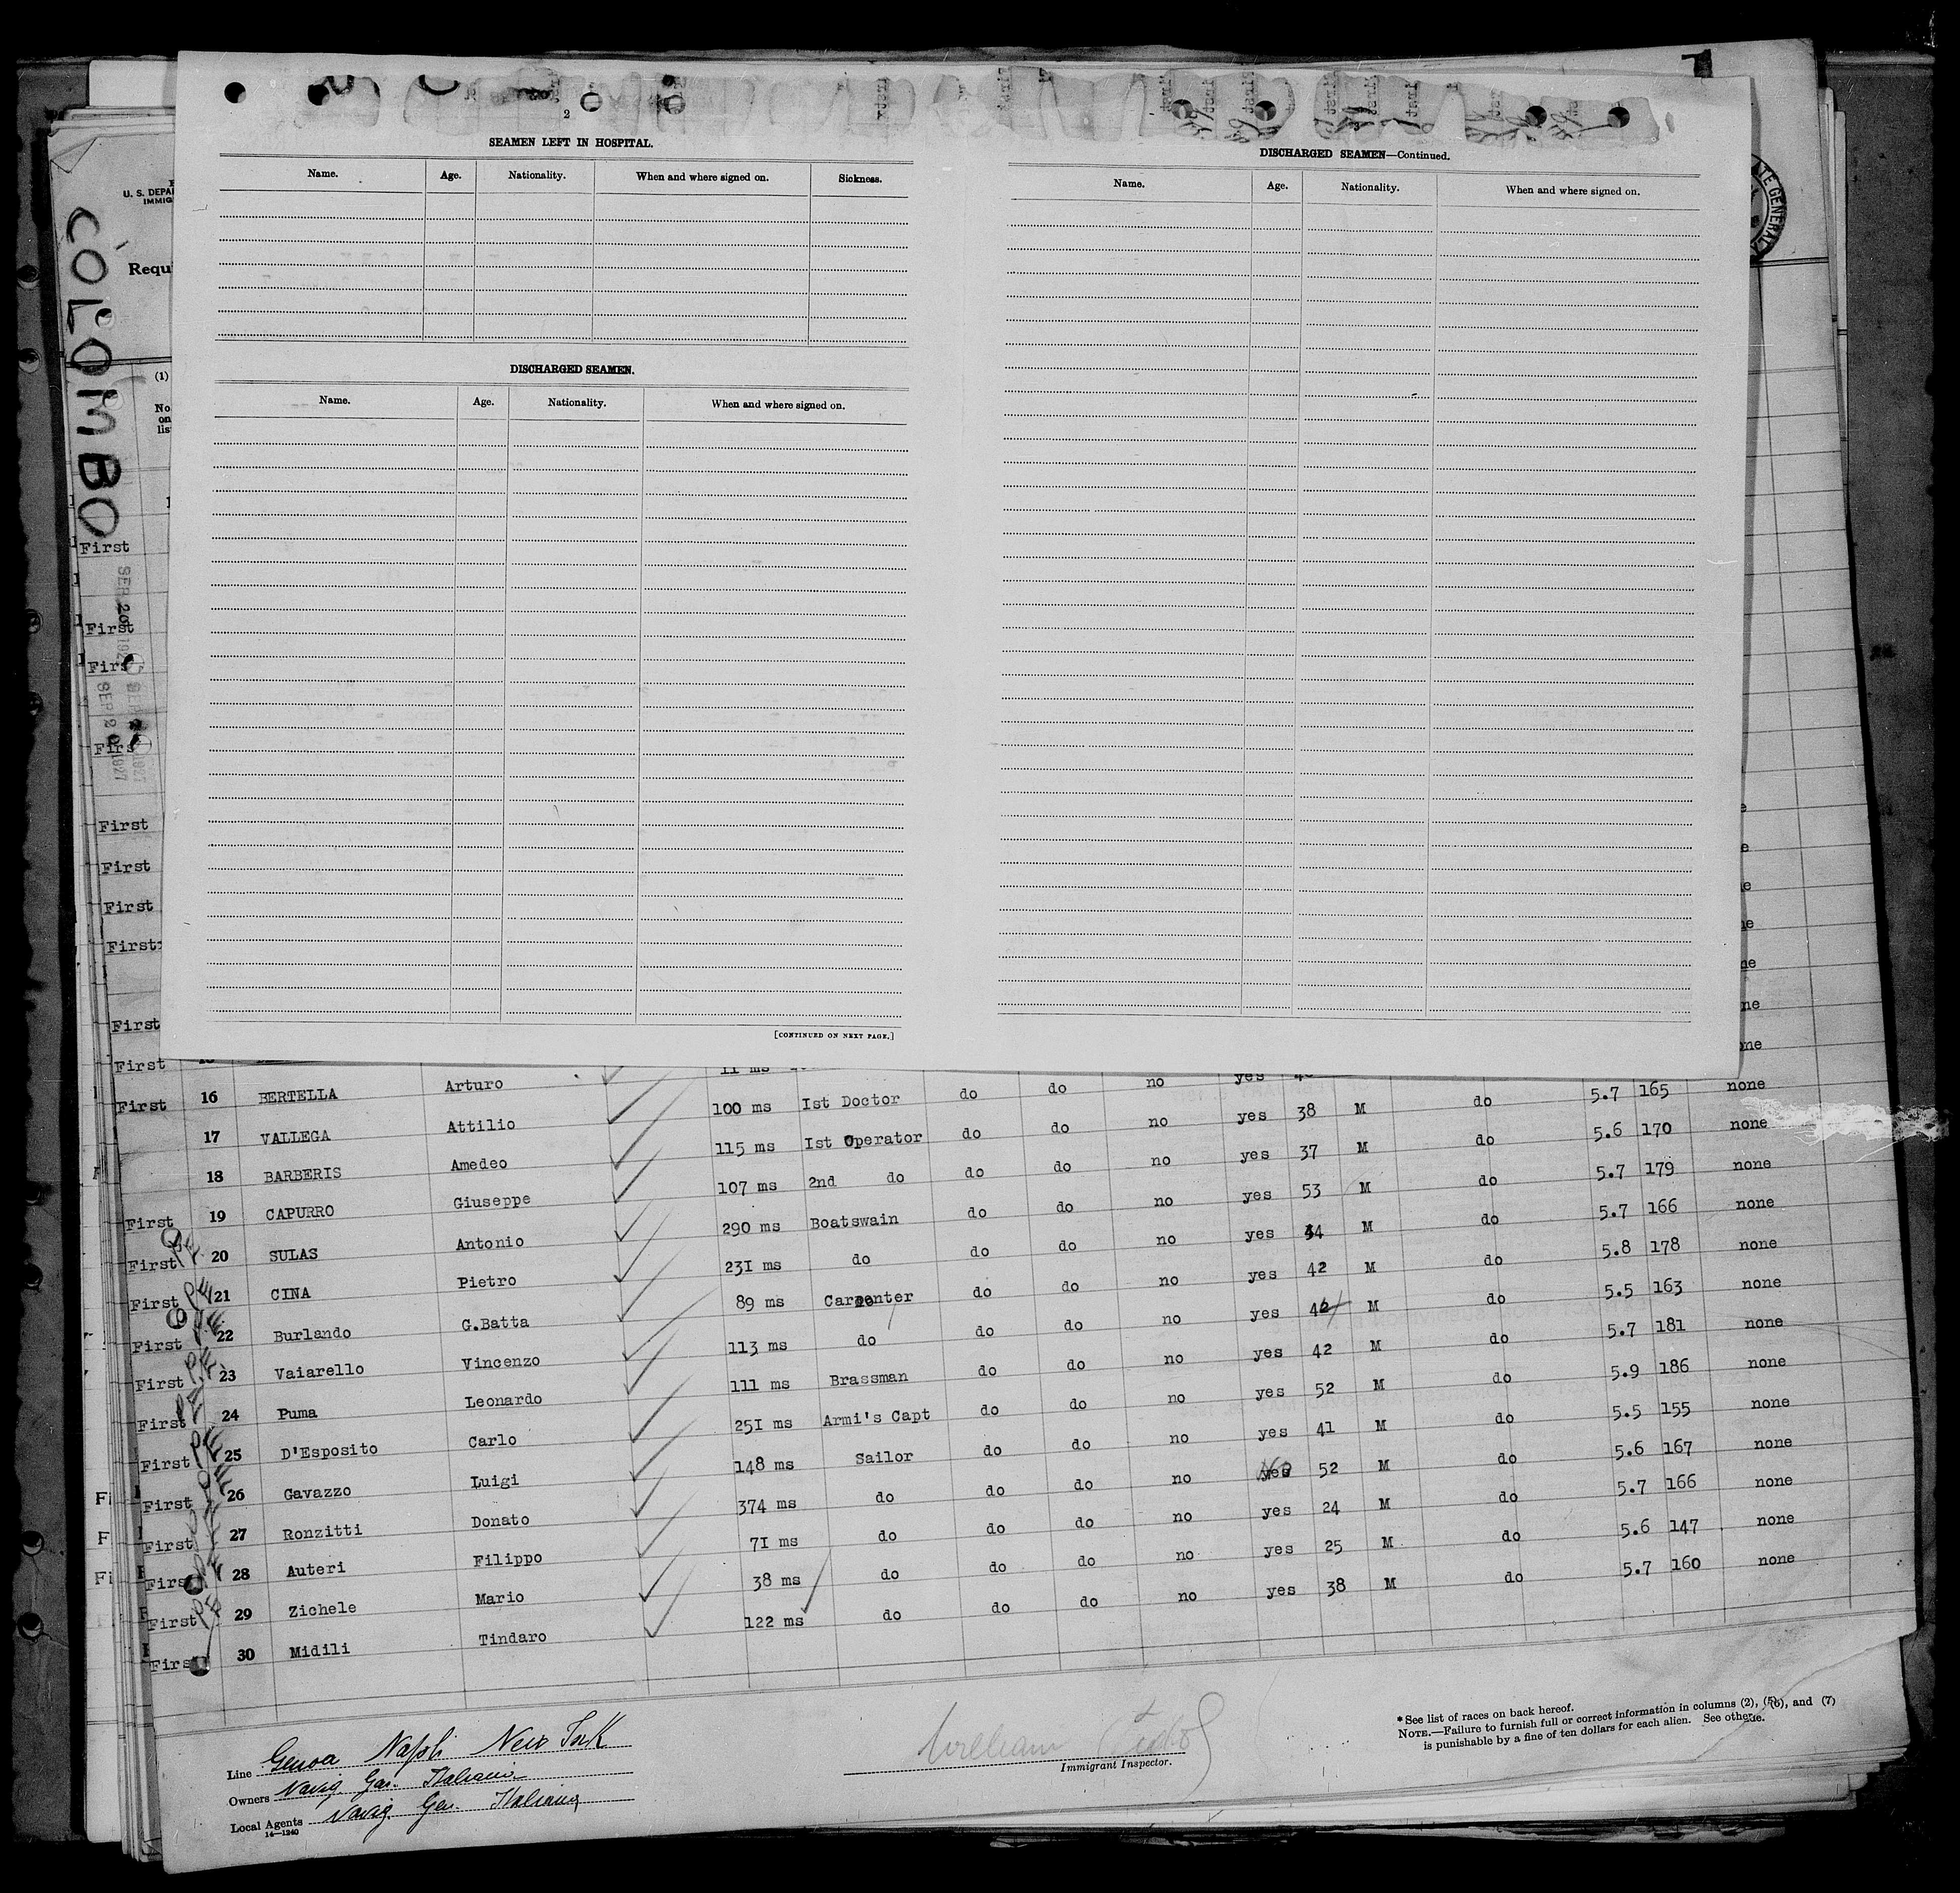 2
SEAMEN LEFT IN HOSPITAL.
Name. Age. Nationality. When and where signed on. Sickness.
DISCHARGED SEAMEN.
Name. Age. Nationality. When and where signed on.
[CONTINUED ON NEXT PAGE.]
DISCHARGED SEAMEN—Continued.
Name. Age. Nationality. When and where signed on.
U. S. DEPA
IMMIG
COLOMBO
Requ
(1)
No
on
lis
TE GENERAL
First
First
Firs
Firs
First
First
First
First
First
First
SEP 20 1927
SEP 20 1927
First 16 BERTELLA Arturo 11 ms
17 VALLEGA Attilio 100 ms Ist Doctor do do no yes
18 BARBERIS Amedeo 115 ms Ist Operator do do no yes 38 M do 5.7 165 none
First 19 CAPURRO Giuseppe 107 ms 2nd do do do no yes 37 M do 5.6 170 none
First PE 20 SULAS Antonio 290 ms Boatswain do do no yes 53 M do 5.7 179 none
First PE 21 CINA Pietro 231 ms do do do no yes 44 M do 5.7 166 none
First PE 22 Burlando G.Batta 89 ms Carpenter do do no yes 42 M do 5.8 178 none
First PE 23 Vaiarello Vincenzo 113 ms do do do no yes 42 M do 5.5 163 none
First PE 24 Puma Leonardo 111 ms Brassman do do no yes 42 M do 5.7 181 none
First PE 25 D'Esposito Carlo 251 ms Armi's Capt do do no yes 52 M do 5.9 186 none
First PE 26 Gavazzo Luigi 148 ms Sailor do do no yes 41 M do 5.5 155 none
First PE 27 Ronzitti Donato 374 ms do do do no yes No 52 M do 5.6 167 none
First PE 28 Auteri Filippo 71 ms do do do no yes 24 M do 5.7 166 none
First PE 29 Zichele Mario 38 ms do do do no yes 25 M do 5.6 147 none
First 30 Midili Tindaro 122 ms do do do no yes 38 M do 5.7 160 none
Line Genoa Napoli New York
Owners Navig. Gen. Italiana
Local Agents Navig. Gen. Italiana
14—1240
William
Immigrant Inspector.
* See list of races on back hereof.
NOTE.—Failure to furnish full or correct information in columns (2), (5), (6), and (7)
is punishable by a fine of ten dollars for each alien. See other